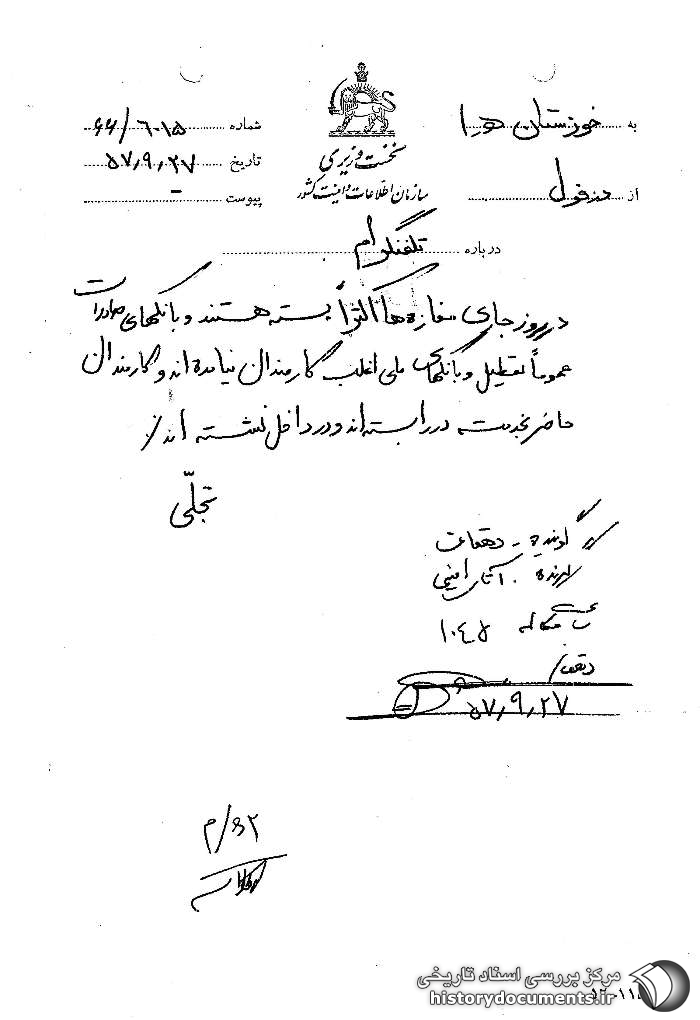 به خوزستان هـ ۱
شماره ۶۰۱۵/
نخست وزیری
سازمان اطلاعات و امنیت کشور
از دزفول
تاریخ ۵۷٫۹٫۲۷
پیوست -
درباره تلفنگرام
در روز جاری مغازه ها اکثراً بسته هستند و بانکهای صادرات
عموماً تعطیل و بانکهای ملی اغلب کارمندان نیامده اند و کارمندان
حاضر بخدمت درب را بسته اند و در داخل نشسته اند /.
تجلّی
گوینده - دهقان
گیرنده . آقای امینی
ساعت مکالمه ۱۰۴۵
۵۷٫۹٫۲۷
مرکز بررسی اسناد تاریخی
historydocuments.ir